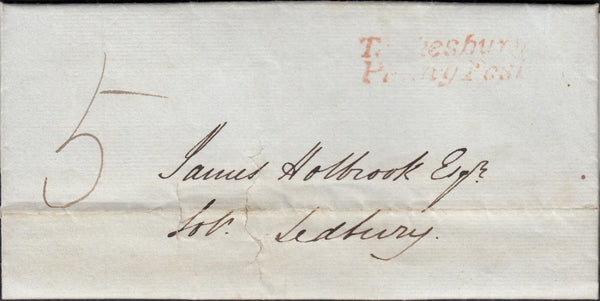 Tewkesbury
Penny Post
5
James Holbrook Esqr.
Solr. Ledbury.